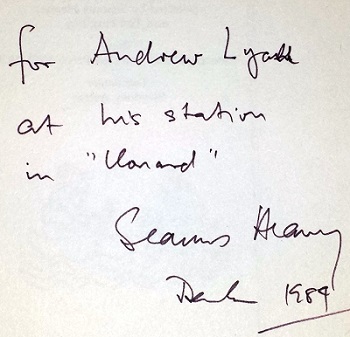 for Andrew Lyall
at his station
in
Seamus Heaney
1984